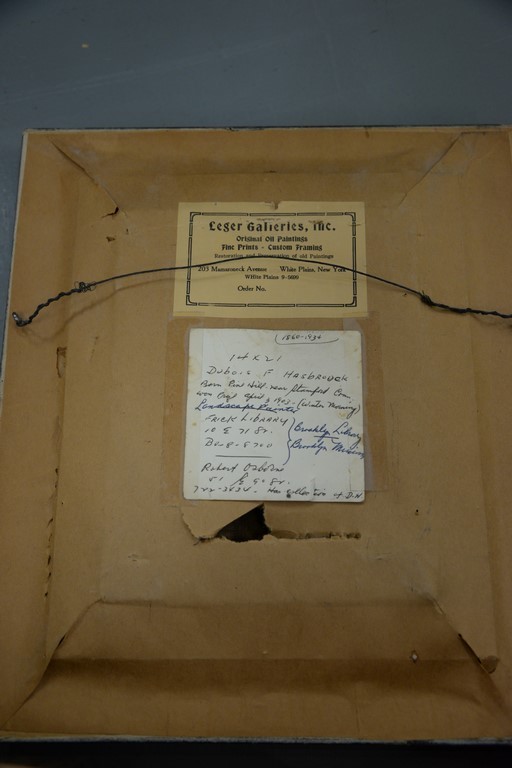 Leger Galleries, Inc.
Original Oil Paintings
Fine Prints - Custom Framing
Restoration and of old Paintings
203 Mamaroneck Avenue White Plains, New York
White Plains 9-5600
Order No.
1860-1934
14 x 21
DuBois F Hasbrouck
Born Pine Hill near Stamford
won April 3 1902 - (Winter Morning)
Landscape Painter
Frick Library
10 E 71 St.
Bu 8-5700
Brooklyn Library
Brooklyn Museum
Robert Osborne
51 E 9 - St.
722-3434 - Has Collection 4 D.H